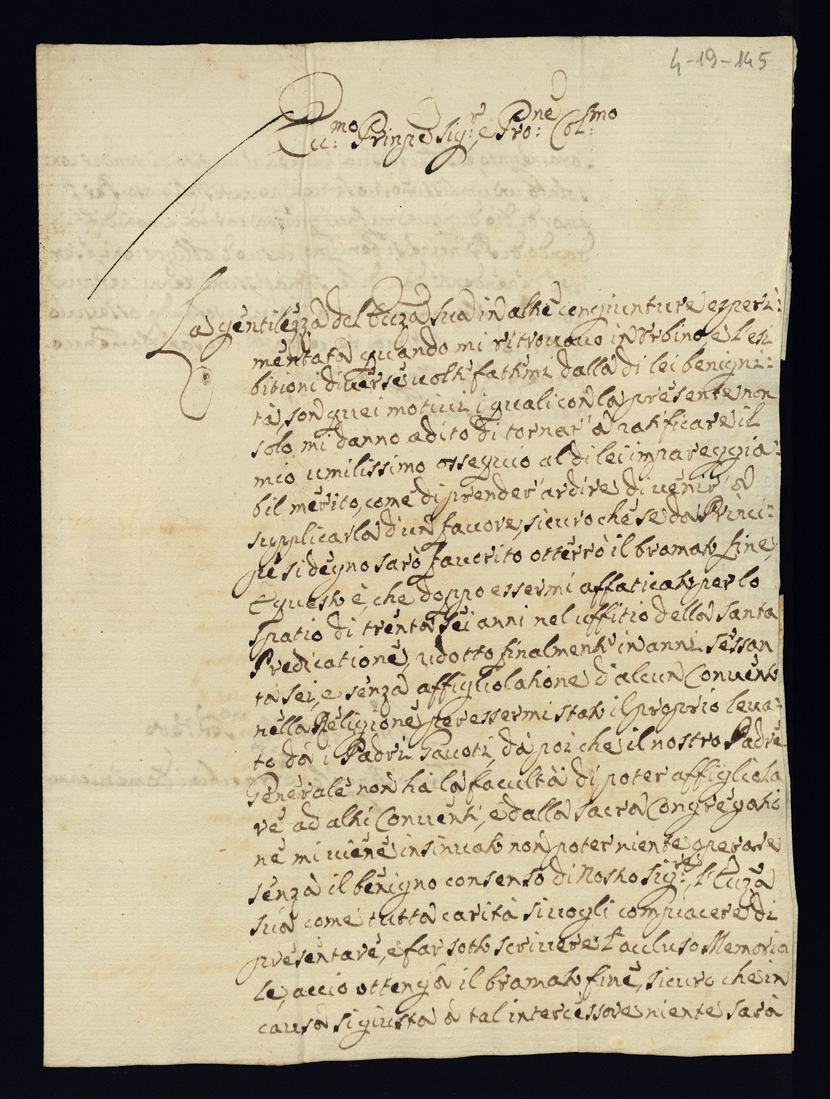 4-19-145
Ecc:mo Prinpe Sig:re, e Pro:ne Col:mo
La gentilezza dell'Ecc.za Sua in altre congiunture esperi:
mentata quando mi ritrovavo in Urbino, e l'esi
bitioni diverse volte fattemi dalla di lei benigni:
tà, son quei motivi i quali con la presente non
solo mi danno adito di tornar' a ratificare il
mio umilissimo ossequio al di lei impareggia:
bil merito, come di prender' ardire di venir' a
supplicarla d'un favore, sicuro che se da Princi:
pe si degno sarò favorito otterrò il bramato fine,
e questo è, che doppo essermi affaticato per lo
spatio di trenta sei anni nel uffitio della Santa
Predicatione, ridotto finalmente in anni sessan
ta sei, e senza affigliolatione d'alcun Convento
nella Religione per essermi stato il proprio leva-
to da i Padri Gavoti, da poi che il nostro Padre
Generale non ha la facultà di poter affigliola
re ad altri Conventi, e dalla Sacra Congregatio
ne mi viene insinuato non poter niente operare
senza il benigno consenso di Nostro Sig:re, l'Ecc.za
sua come tutta carità si vogli compiacere di
presentare, e far sotto scrivere l'accluso Memoria
le, acciò ottenga il bramato fine, sicuro che in
causa si giusta a tal intercessore niente sarà